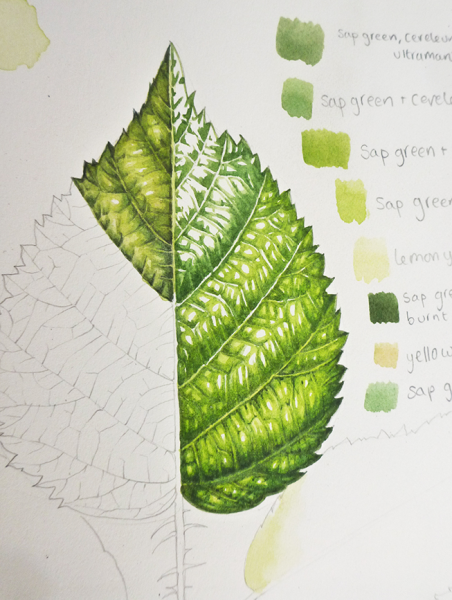 Sap green, ceruleum
ultramar
Sap green + cerule
Sap green +
Sap green
lemon y
Sap gre
burnt
yellow
Sap g